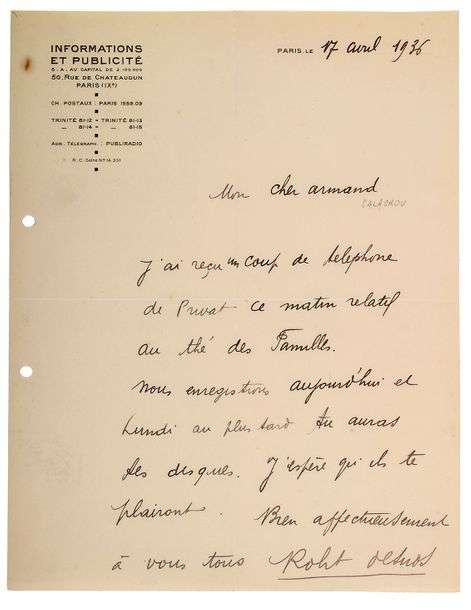 INFORMATIONS
ET PUBLICITÉ
S. A. AU CAPITAL DE
50, RUE DE CHATEAUDUN
PARIS (IXe)
CH. POSTAUX : PARIS 1559.09
TRINITÉ 81-12 - TRINITÉ 81-13
„ 81-14 - „ 81-15
ADR. TÉLÉGRAPH. : PUBLIRADIO
R. C. Seine N°
PARIS LE 17 avril 1936
Mon cher armand
SALACROU
J'ai reçu un coup de telephone
de Privat ce matin relatif
au thé des Familles.
Nous enregistrons aujourd'hui et
Lundi au plus tard tu auras
tes disques. J'espère qu'ils te
plairont. Bien affectueusement
à vous tous Robt Desnos